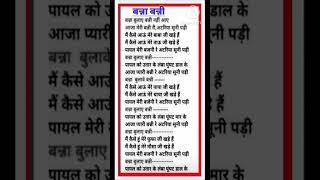 बन्ना बन्नी
बन्ना बुलाए बन्नी नहीं आए
आजा मेरी बन्नी रे अटरिया सूनी पड़ी
मैं कैसे आऊं मेरे बाबा जी खड़े हैं
मैं कैसे आऊं मेरे ताऊ जी खड़े हैं
पायल मेरी बजनी रे अटरिया सूनी पड़ी
बन्ना बुलाए बन्नी
पायल को उतार के लंबा घूंघट डाल के
आजा प्यारी बन्नी रे अटरिया सूनी पड़ी
बन्ना बुलावे बन्नी
मैं कैसे आऊं मेरे पापा जी खड़े हैं
मैं कैसे आऊं मेरे चाचा जी खड़े हैं
पायल मेरी बजेनी रे अटरिया सूनी पड़ी
बन्ना बुलाए बन्नी
पायल को उतार के लंबा घूंघट मार के
आजा प्यारी बन्नी रे अटरिया सूनी पड़ी
बन्ना बुलाए बन्नी
मैं कैसे हूं मेरे फूफा जी खड़े हैं
मैं कैसे हूं मेरे मौसा जी खड़े हैं
पायल मेरी बजनी रे अटरिया सूनी पड़ी
बन्ना बुलाए बन्नी
पायल को उतार के लंबा घूंघट डाल के